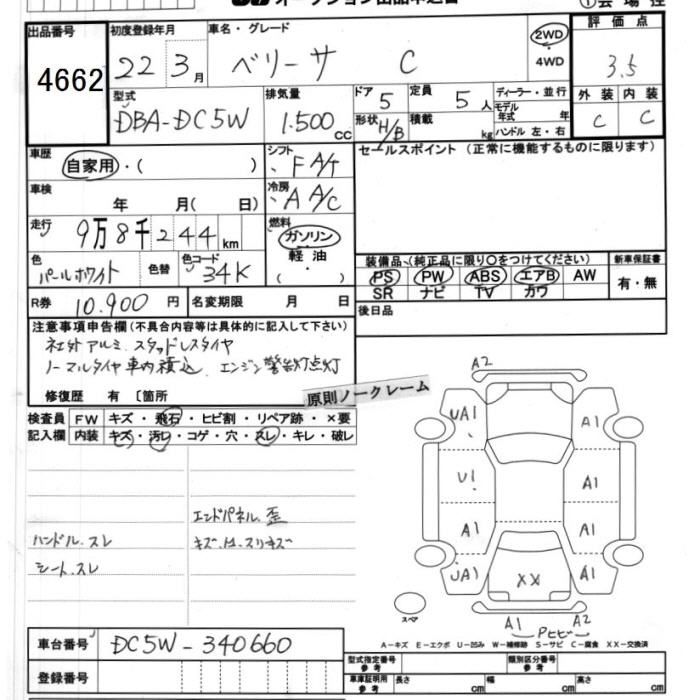 オークション出品申込書
①会場控
出品番号 初度登録年月 車名・グレード 評価点
4662 22 3月 ベリーサ C 2WD 3.5
4WD
型式 排気量 ドア 5 定員 5人 ディーラー・並行 外装 内装
DBA-DC5W 1.500cc 形状 H/B 積載 kg モデル年式 年 C C
ハンドル 左・右
車歴 自家用・( ) シフト F A/T セールスポイント(正常に機能するものに限ります)
車検 年 月( 日) 冷房 A A/C
走行 9万8千244km 燃料 ガソリン
軽油
( ・ )
色 パールホワイト 色替 色コード 34K
装備品(純正品に限り○をつけてください) 新車保証書
PS PW ABS エアB AW 有・無
SR ナビ TV カワ
R券 10.900円 名変期限 月 日 後日品
注意事項申告欄(不具合内容等は具体的に記入して下さい)
社外アルミ.スタッドレスタイヤ
ノーマルタイヤ車内積込.エンジン警告灯点灯
修復歴 有 〔箇所
原則ノークレーム
検査員 FW キズ・飛石・ヒビ割・リペア跡・×要
記入欄 内装 キズ・汚レ・コゲ・穴・スレ・キレ・破レ
エンドパネル.歪
ハンドル.スレ
シート.スレ
A2
UA1 A1
U1 A1
A1 A1
UA1 XX A1
スペア
A1 A2
Pヒビ
A-キズ E-エクボ U-凹み W-補修跡 S-サビ C-腐食 XX-交換済
車台番号 DC5W-340660
登録番号
型式指定番号 参考 類別区分番号 参考
車庫証明用 参考 長さ cm 幅 cm 高さ cm